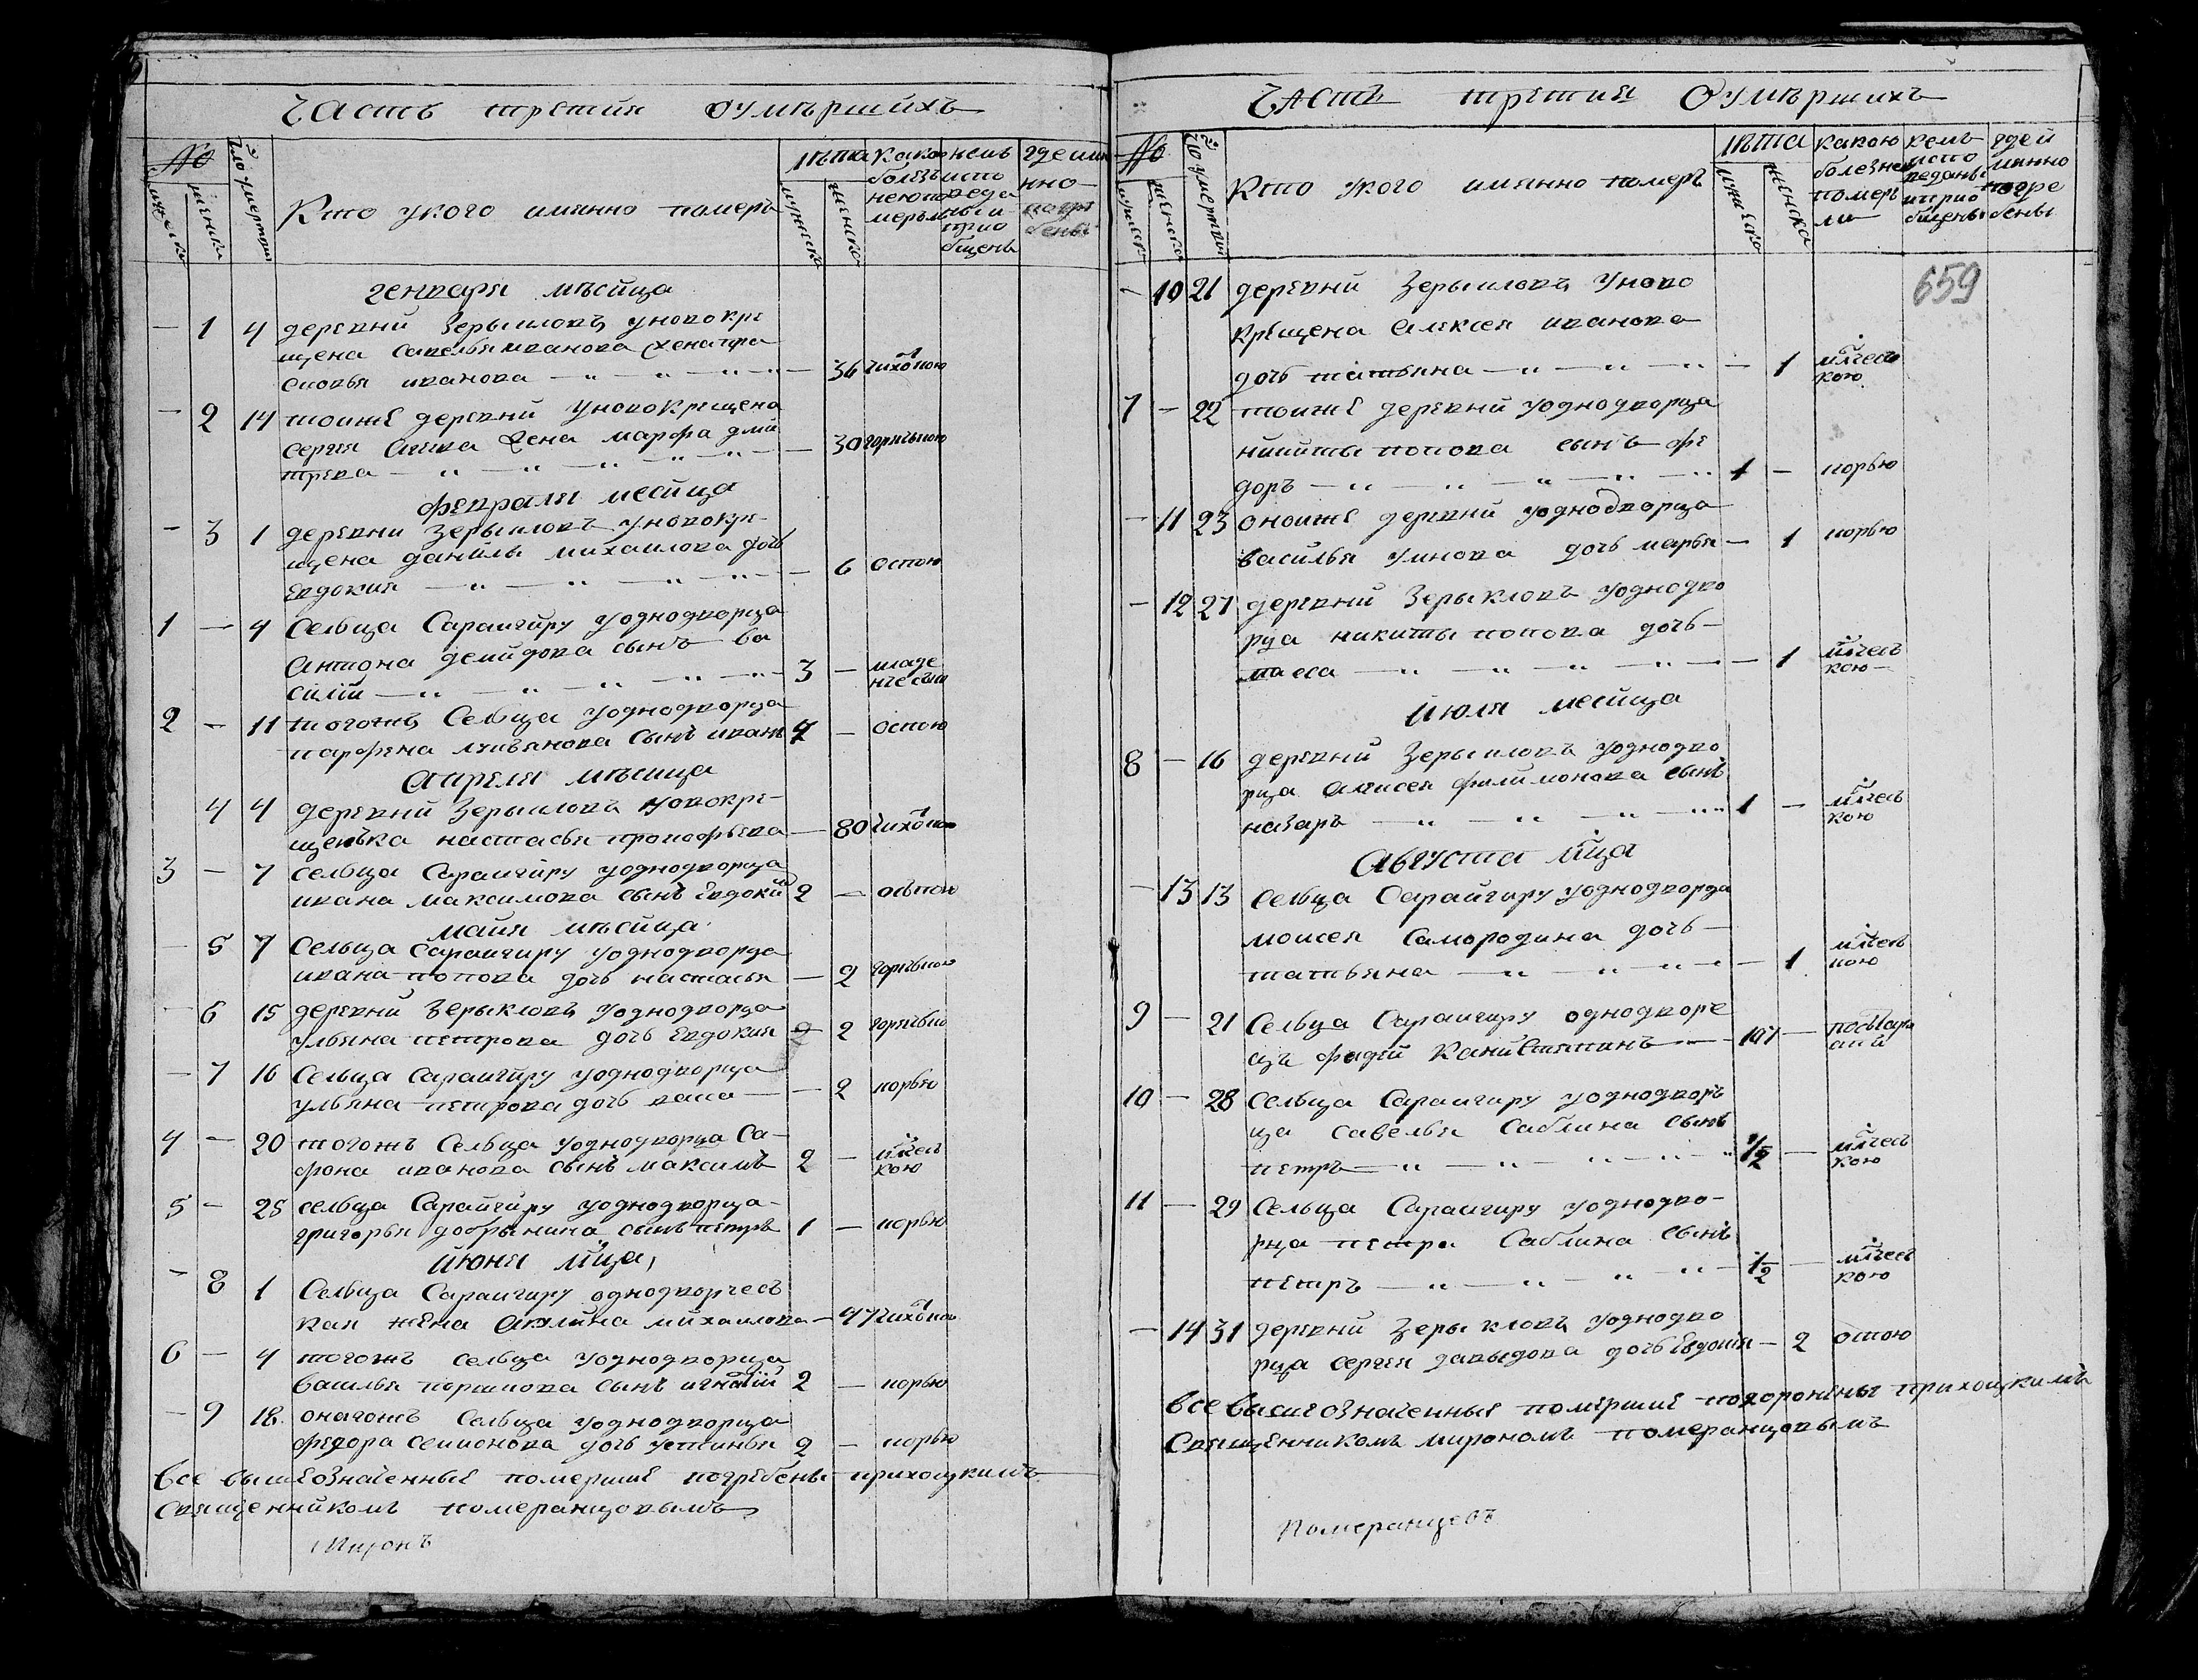 Часть третия оумѣршихъ
№ число умертвия
мужеска женска
Кто укого имянно померъ
лѣта
мужеска женска
какою болезнею померли
кемъ исповеданы и приобщены
где имянно погребены
генваря мѣсяца
— 1 4 деревни Зерыкловъ уновокре
щена савелья иванова жена пра
сковья иванова — 36 чихоткою
— 2 14 тоиже деревни уновокрещена
сергея жена марфа дми
трева — 30 горячкою
февраля месяца
— 3 1 деревни Зерыкловъ уновокре
щена данилы михаилова дочь
евдокия — 6 оспою
1 — 4 Сельца Сараигиру уоднодворца
антона демидова сынъ ва
силiй 3 — младе
нческою
2 — 11 тогожъ Сельца уоднодворца
парфена сынъ иванъ 4 — оспою
апреля мѣсяца
4 4 деревни Зерыкловъ новокре
щенъка настасья прокофьева — 80 чихоткою
3 — 7 сельца Сараигиру уоднодворца
ивана максимова сынъ Евдокимъ 2 — оспою
майя мѣсяца
— 5 7 Сельца Сараигиру уоднодворца
ивана попова дочь настасья — 2 горячкою
— 6 15 деревни Зерыкловъ уоднодворца
ульяна петрова дочь Евдокия 2 2 горячкою
— 7 16 Сельца Сараигиру уоднодворца
ульяна петрова дочь васа — 2 корью
4 — 20 тогожъ Сельца уоднодворца Са-
фона иванова сынъ максимъ 2 — млчес
кою
5 — 25 сельца Сарайгиру уоднодворца
григорьи добрынина сынъ петръ 1 — корью
июня мца
— 8 1 Сельца Сараигиру однодворчес
кая жена Акулина михаилова — 47 чихоткою
6 — 4 тогожъ сельца уоднодворца
василья паршкова сынъ игнатiй 2 — корью
— 9 18 онагожъ Сельца уоднодворца
федора семионова дочь устинья 2 — корью
все вышеозначенные помершие погребены приходскимъ
священникомъ померанцовымъ
Миронъ
Часть третия Оумѣршихъ
№ число умертвия
мужеска женска
Кто укого имянно померъ
лѣта
мужеска женска
какою болезнею померли
кемъ исповеданы и приобщены
где имянно погребены
659
— 10 21 деревни Зерыкловъ Уново
крещена алексея иванова
дочь татьяна — 1 млчес
кою
7 — 22 тоиже деревни уоднодворца
никиты попова сынъ фе
доръ 1 — корью
— 11 23 оноиже деревни уоднодворца
василья умнова дочь марья — 1 корью
— 12 27 деревни Зерыкловъ уоднодво
рца никиты попова дочь
таеса — 1 млчес
кою
июля месяца
8 — 16 деревни Зерыкловъ уоднодво
рца алексея филимонова сынъ
назаръ 1 — млчес
кою
Августа мца
— 13 13 сельца Сарайгиру уоднодворца
моисея Самородина дочь
татьяна — 1 млчес
кою
9 — 21 Сельца Сараигиру однодворе
цъ фадей 107 — постаро
сти
10 — 28 сельца Сараигиру уоднодворъ
ца савелья Саблина сынъ
петръ 1/2 — млчес
кою
11 — 29 Сельца Сараигиру уоднодво-
рца петра Саблина сынъ
петръ 1/2 — млчес
кою
— 14 31 деревни Зерыкловъ уоднодво
рца сергея давыдова дочь Евдокия — 2 оспою
все вышеозначенные помершие похоронены приходскимъ
священникомъ мирономъ померанцовымъ
Померанцовъ